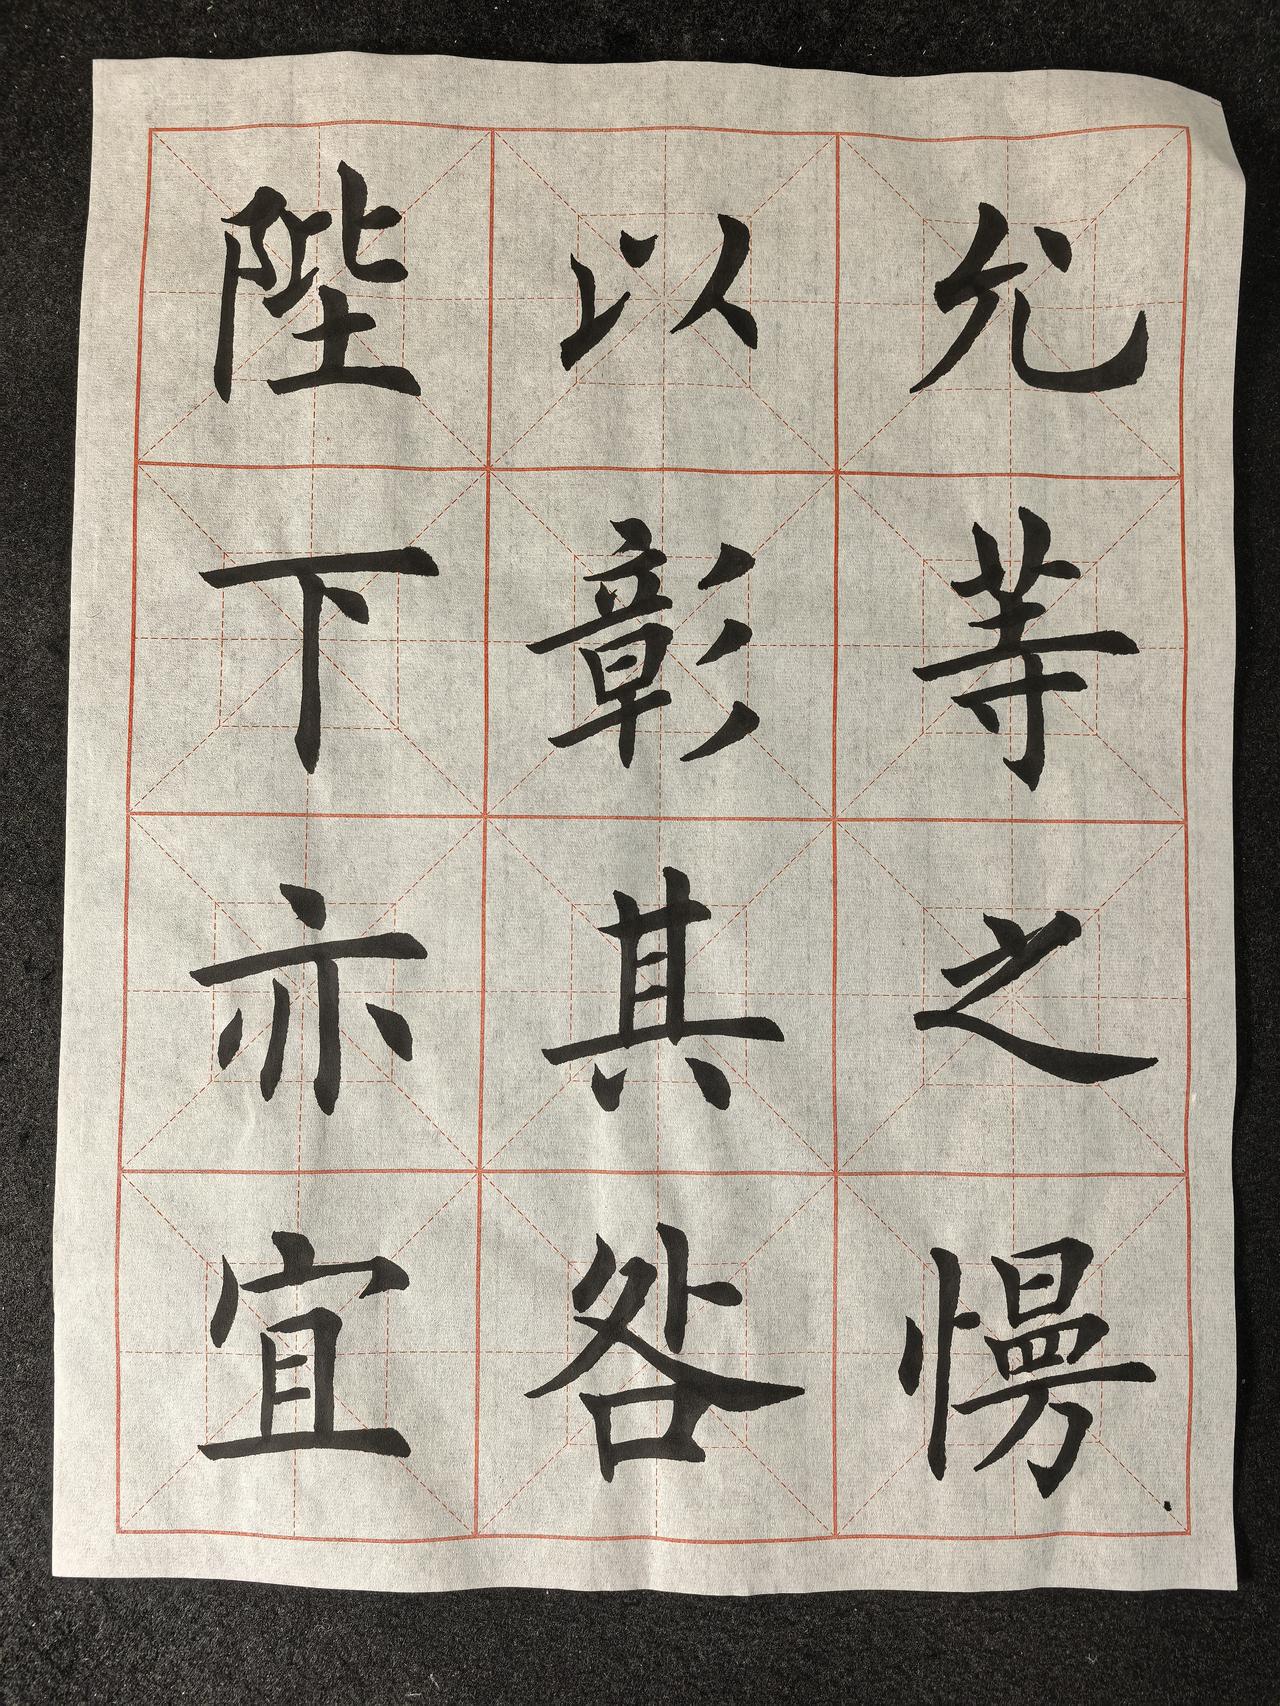 允等之慢
以彰其咎
陛下亦宜